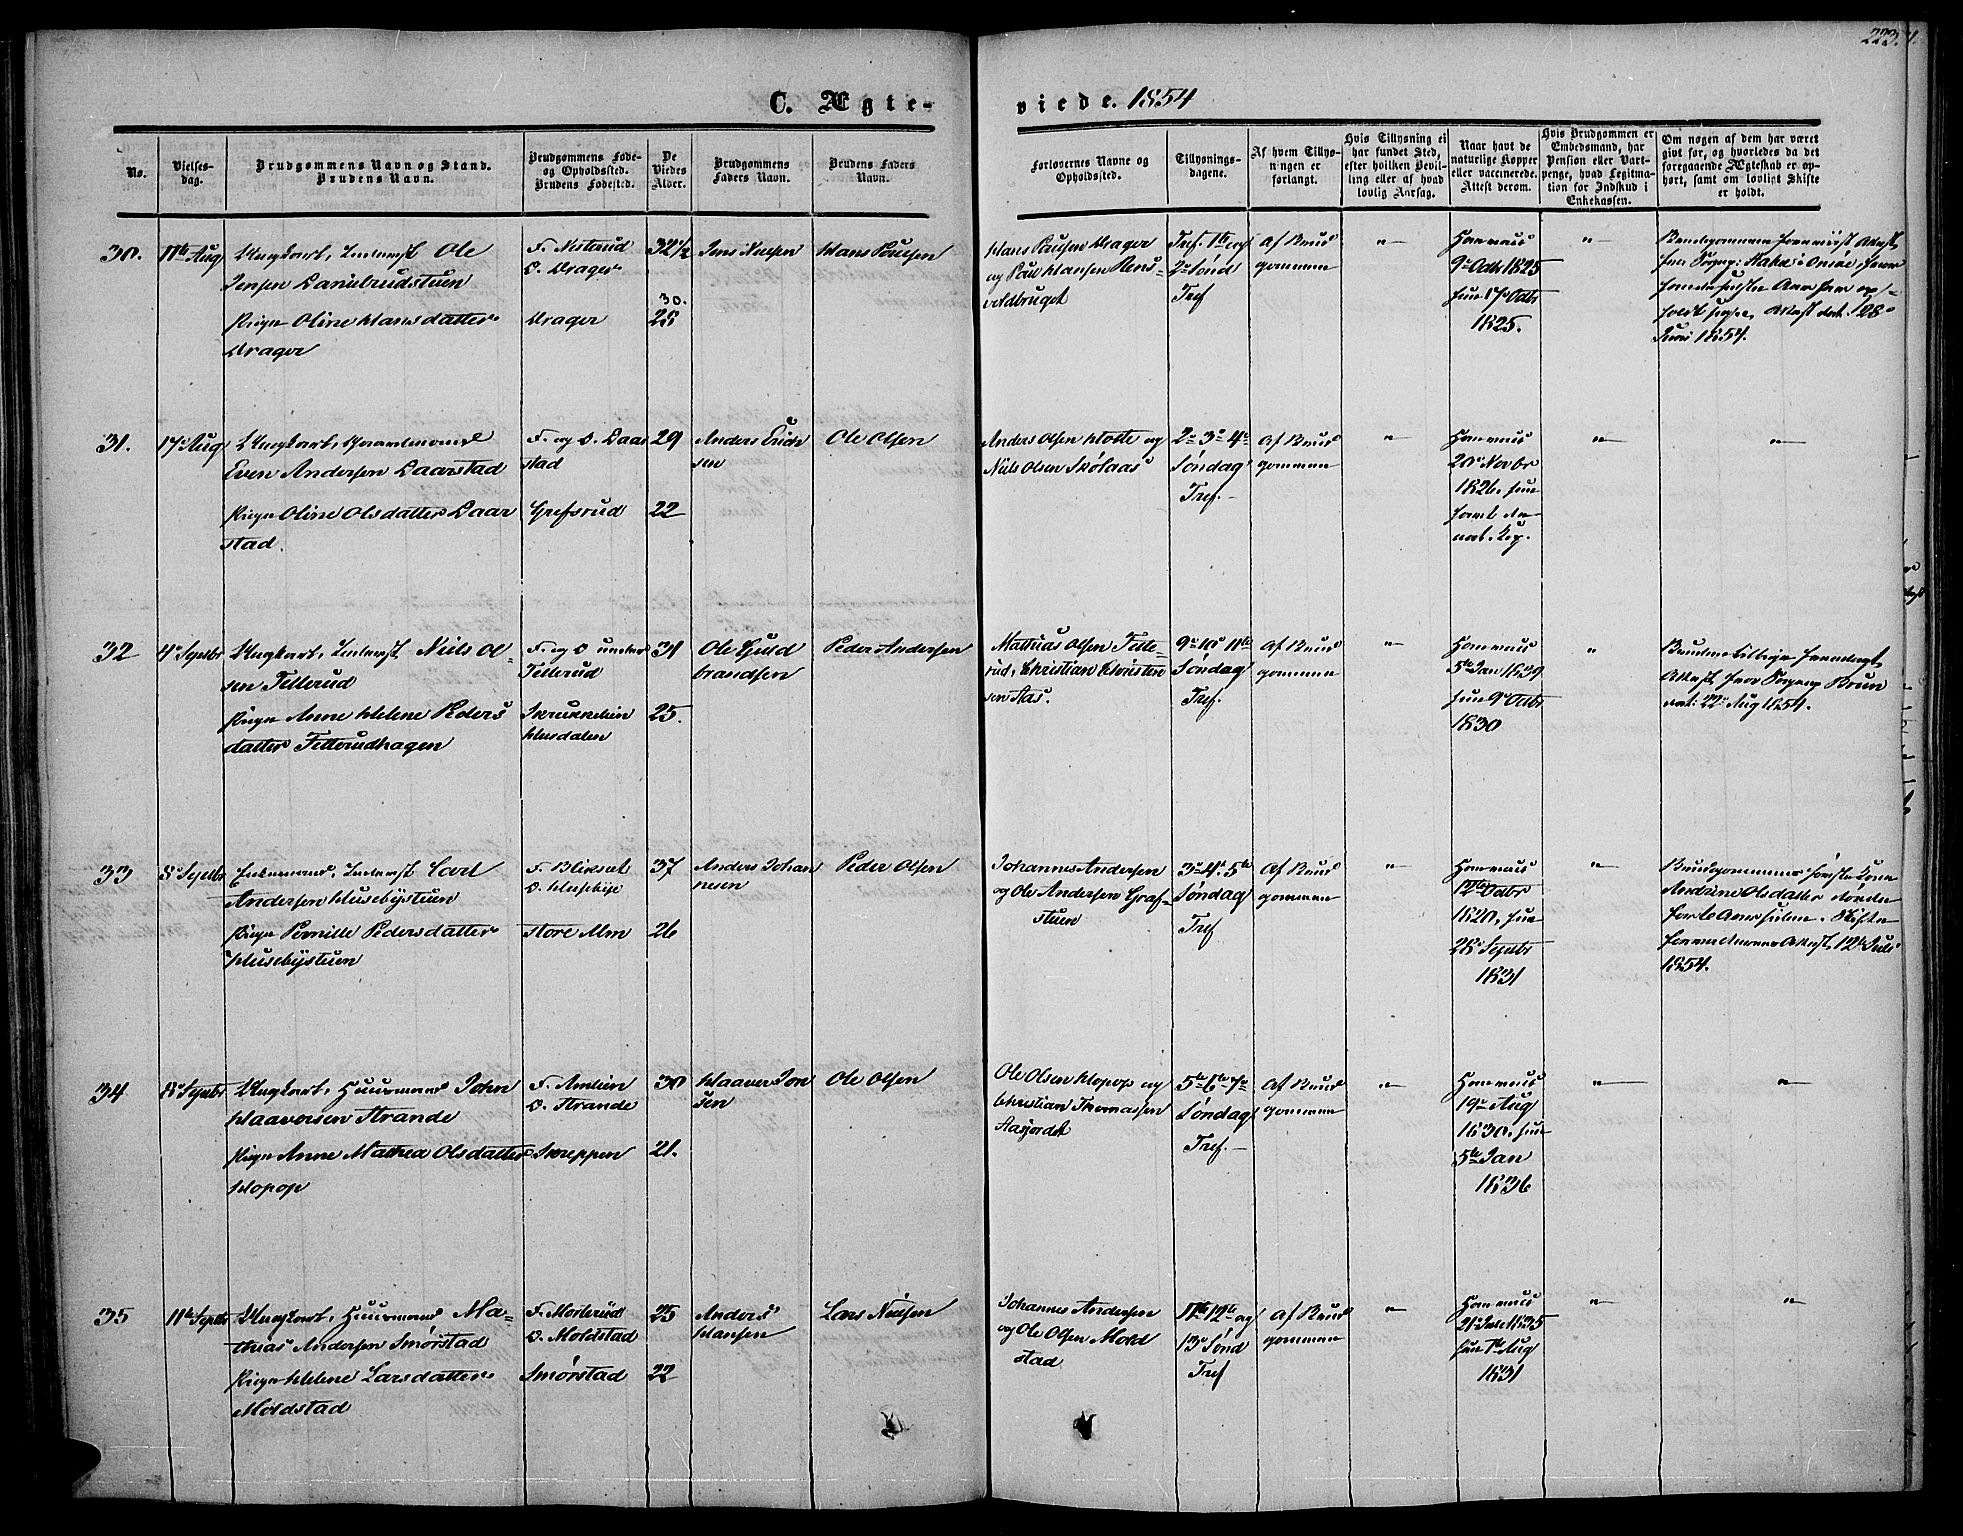 223.
C. Ægte-
viede. 1854
No.
Vielses-
dag.
Brudgommens Navn og Stand.
Brudens Navn.
Brudgommens Føde-
og Opholdssted.
Brudens Fødested.
De
Viedes
Alder.
Brudgommens
Faders Navn.
Brudens Faders
Navn.
Forlovernes Navne og
Opholdssted.
Tillysnings-
dagene.
Af hvem Tillys-
ningen er
forlangt.
Hvis Tillysning ei
har fundet Sted,
efter hvilken Bevil-
ling eller af hvad
lovlig Aarsag.
Naar havt de
naturlige Kopper
eller vaccinerede.
Attest derom.
Hvis Brudgommen er
Embedsmand, har
Pension eller Vart-
penge, hvad Legitima-
tion for Indskud i
Enkekassen.
Om nogen af dem har været
gift før, og hvorledes da det
foregaaende Ægteskab er op-
hørt, samt om lovligt Skifte
er holdt.
30.
11te Aug
Ungkarl, Inderst Ole
Jensen
Pigen Oline Hansdatter
Drager
F. Nesterud
O. Drager
Drager
32½
30.
28
Jens Nielsen
Hans Poulsen
Hans Poulsen Drager
og Poul Hansen Rens-
voldbruget
Tref. 1te og
2n Sønd
Tref
Af Brud
gommen
"
9n Octb 1825
17n Octbr
1825.
"
Juni 1854.
31.
17n Aug
Ungkarl, Gaardmand
Even Andersen Daarstad
Pigen Oline Olsdatter Daar
stad.
F. og O. Daar
stad
Grefsrud
29
22
Anders Erich
sen
Ole Olsen
Anders Olsen Holte og
Niels Olsen Skølaas
2n 3n 4n
Søndag
Tref.
Af Brud
gommen
"
20n Novbr
1826.
"
"
32
4n Septbr
Ungkarl, Inderst Niels Ol-
sen Fetterud
Pigen Anne Helene Peders
datter Fetterudhagen
F. og O under
Fetterud
Skrukkelien
Hurdalen
31
25.
Ole Guld
brandsen
Peder Andersen
Mathias Olsen Fette-
rud, Christian Christen
sen Aas.
9n 10n 11te
Søndag
Tref.
Af Brud
gommen
"
5te Jan 1839
9n Octbr
1830
"
22n Aug 1854.
33
8n Septbr
Enkemand, Inderst Carl
Andersen Husebystuen
Pigen Pernille Pedersdatter
Husebystuen
F. Blikset
O. Husebye
Store Alm
37
26
Anders Johan
nesen
Peder Olsen
Johannes Andersen
og Ole Andersen Graf-
stuen
3n 4n 5te
Søndag
Tref
Af Brud
gommen
"
12te Octbr
1820,
28n Septbr
1831
"
Brudgommens første Kone
Andrine Olsdatter døde
1854.
34
8n Septbr
Ungkarl, Huusmand John
Haaversen Strande
Pigen Anne Mathea Olsdatter
Hopop
F. Amlien
O. Strande
Skreppen
30
21.
Haaver Jon
sen
Ole Olsen
Ole Olsen Hopop og
Christian Thomassen
Aasjordet
5te 6te 7n
Søndag
Tref.
Af Brud
gommen
"
19n Aug
1830.
5te Jan
1836
"
"
35
11te Septb
Ungkarl, Huusmand Ma-
thias Andersen Smørstad
Pigen Helene Larsdatter
Moldstad
F. Morterud
O. Moldstad
Smørstad
25
22
Anders
Hansen
Lars Nielsen
Johannes Andersen
og Ole Olsen Mold
stad
11te 12te og
13n Sønd
Tref
Af Brud
gommen
"
1835
Aug
1831
"
"